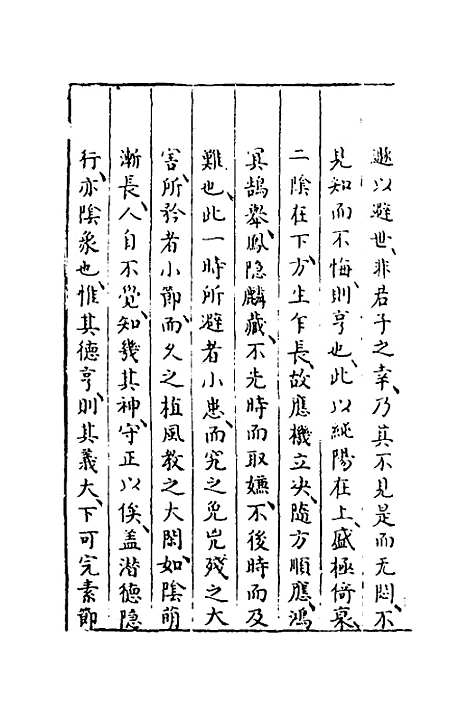 遯以避世、非君子之幸、乃其不見是而无悶、不
見知而不悔、則亨也、此以純陽在上、盛極倚衰、
二陰在下、方生乍長、故應機立决、隨方順應、鴻
冥鵠舉、鳳隐麟藏、不先時而取嫌、不後時而及
難也、此一時所避者小患、而究之免兇殘之大
害、所矜者小節、而久之植風教之大閑、如陰萌
漸長、人自不覺、知幾其神、守正以俟、盖潜德隐
行、亦陰象也、惟其德亨、則其義大、下可完素節